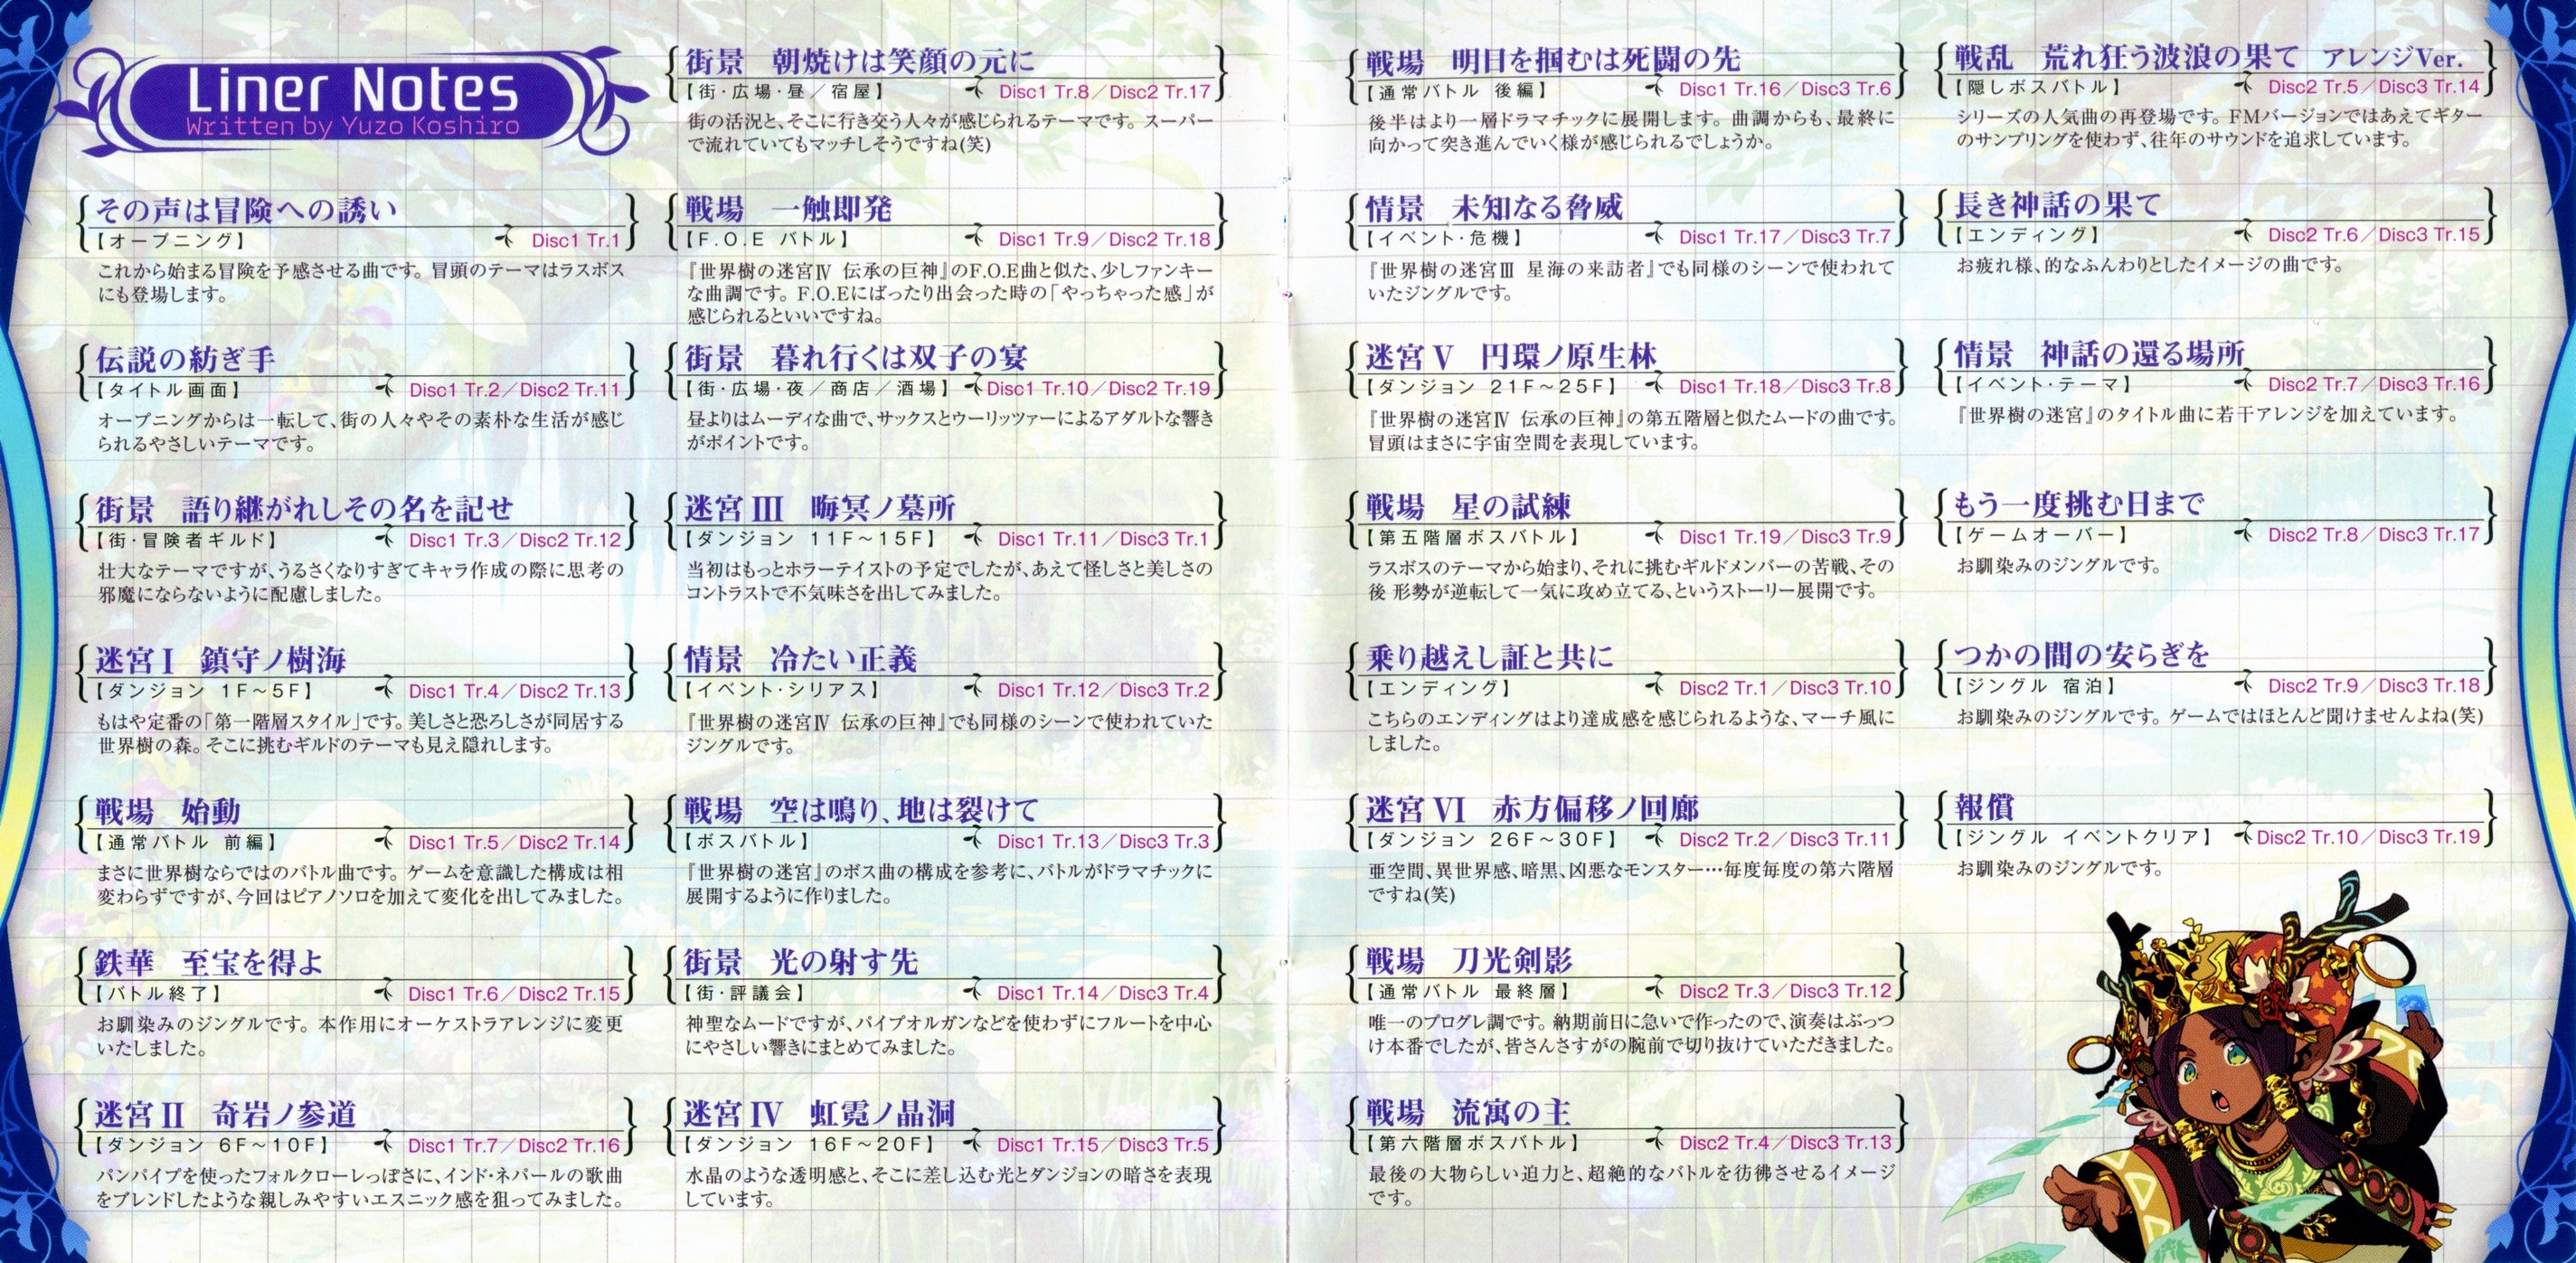 Liner Notes
Written by Yuzo Koshiro
その声は冒険への誘い
【オープニング】 Disc1 Tr.1
これから始まる冒険を予感させる曲です。冒頭のテーマはラスボス
にも登場します。
伝説の紡ぎ手
【タイトル画面】 Disc1 Tr.2／Disc2 Tr.11
オープニングからは一転して、街の人々やその素朴な生活が感じ
られるやさしいテーマです。
街景 語り継がれしその名を記せ
【街・冒険者ギルド】 Disc1 Tr.3／Disc2 Tr.12
壮大なテーマですが、うるさくなりすぎてキャラ作成の際に思考の
邪魔にならないように配慮しました。
迷宮Ⅰ 鎮守ノ樹海
【ダンジョン 1F～5F】 Disc1 Tr.4／Disc2 Tr.13
もはや定番の「第一階層スタイル」です。美しさと恐ろしさが同居する
世界樹の森。そこに挑むギルドのテーマも見え隠れします。
戦場 始動
【通常バトル 前編】 Disc1 Tr.5／Disc2 Tr.14
まさに世界樹ならではのバトル曲です。ゲームを意識した構成は相
変わらずですが、今回はピアノソロを加えて変化を出してみました。
鉄華 至宝を得よ
【バトル終了】 Disc1 Tr.6／Disc2 Tr.15
お馴染みのジングルです。本作用にオーケストラアレンジに変更
いたしました。
迷宮Ⅱ 奇岩ノ参道
【ダンジョン 6F～10F】 Disc1 Tr.7／Disc2 Tr.16
パンパイプを使ったフォルクローレっぽさに、インド・ネパールの歌曲
をブレンドしたような親しみやすいエスニック感を狙ってみました。
街景 朝焼けは笑顔の元に
【街・広場・昼／宿屋】 Disc1 Tr.8／Disc2 Tr.17
街の活況と、そこに行き交う人々が感じられるテーマです。スーパー
で流れていてもマッチしそうですね(笑)
戦場 一触即発
【F.O.E バトル】 Disc1 Tr.9／Disc2 Tr.18
『世界樹の迷宮Ⅳ 伝承の巨神』のF.O.E曲と似た、少しファンキー
な曲調です。F.O.Eにばったり出会った時の「やっちゃった感」が
感じられるといいですね。
街景 暮れ行くは双子の宴
【街・広場・夜／商店／酒場】 Disc1 Tr.10／Disc2 Tr.19
昼よりはムーディな曲で、サックスとウーリッツァーによるアダルトな響き
がポイントです。
迷宮Ⅲ 晦冥ノ墓所
【ダンジョン 11F～15F】 Disc1 Tr.11／Disc3 Tr.1
当初はもっとホラーテイストの予定でしたが、あえて怪しさと美しさの
コントラストで不気味さを出してみました。
情景 冷たい正義
【イベント・シリアス】 Disc1 Tr.12／Disc3 Tr.2
『世界樹の迷宮Ⅳ 伝承の巨神』でも同様のシーンで使われていた
ジングルです。
戦場 空は鳴り、地は裂けて
【ボスバトル】 Disc1 Tr.13／Disc3 Tr.3
『世界樹の迷宮』のボス曲の構成を参考に、バトルがドラマチックに
展開するように作りました。
街景 光の射す先
【街・評議会】 Disc1 Tr.14／Disc3 Tr.4
神聖なムードですが、パイプオルガンなどを使わずにフルートを中心
にやさしい響きにまとめてみました。
迷宮Ⅳ 虹霓ノ晶洞
【ダンジョン 16F～20F】 Disc1 Tr.15／Disc3 Tr.5
水晶のような透明感と、そこに差し込む光とダンジョンの暗さを表現
しています。
戦場 明日を掴むは死闘の先
【通常バトル 後編】 Disc1 Tr.16／Disc3 Tr.6
後半はより一層ドラマチックに展開します。曲調からも、最終に
向かって突き進んでいく様が感じられるでしょうか。
情景 未知なる脅威
【イベント・危機】 Disc1 Tr.17／Disc3 Tr.7
『世界樹の迷宮Ⅲ 星海の来訪者』でも同様のシーンで使われて
いたジングルです。
迷宮Ⅴ 円環ノ原生林
【ダンジョン 21F～25F】 Disc1 Tr.18／Disc3 Tr.8
『世界樹の迷宮Ⅳ 伝承の巨神』の第五階層と似たムードの曲です。
冒頭はまさに宇宙空間を表現しています。
戦場 星の試練
【第五階層ボスバトル】 Disc1 Tr.19／Disc3 Tr.9
ラスボスのテーマから始まり、それに挑むギルドメンバーの苦戦、その
後 形勢が逆転して一気に攻め立てる、というストーリー展開です。
乗り越えし証と共に
【エンディング】 Disc2 Tr.1／Disc3 Tr.10
こちらのエンディングはより達成感を感じられるような、マーチ風に
しました。
迷宮Ⅵ 赤方偏移ノ回廊
【ダンジョン 26F～30F】 Disc2 Tr.2／Disc3 Tr.11
亜空間、異世界感、暗黒、凶悪なモンスター…毎度毎度の第六階層
ですね(笑)
戦場 刀光剣影
【通常バトル 最終層】 Disc2 Tr.3／Disc3 Tr.12
唯一のプログレ調です。納期前日に急いで作ったので、演奏はぶっつ
け本番でしたが、皆さんさすがの腕前で切り抜けていただきました。
戦場 流寓の主
【第六階層ボスバトル】 Disc2 Tr.4／Disc3 Tr.13
最後の大物らしい迫力と、超絶的なバトルを彷彿させるイメージ
です。
戦乱 荒れ狂う波浪の果て アレンジVer.
【隠しボスバトル】 Disc2 Tr.5／Disc3 Tr.14
シリーズの人気曲の再登場です。FMバージョンではあえてギター
のサンプリングを使わず、往年のサウンドを追求しています。
長き神話の果て
【エンディング】 Disc2 Tr.6／Disc3 Tr.15
お疲れ様、的なふんわりとしたイメージの曲です。
情景 神話の還る場所
【イベント・テーマ】 Disc2 Tr.7／Disc3 Tr.16
『世界樹の迷宮』のタイトル曲に若干アレンジを加えています。
もう一度挑む日まで
【ゲームオーバー】 Disc2 Tr.8／Disc3 Tr.17
お馴染みのジングルです。
つかの間の安らぎを
【ジングル 宿泊】 Disc2 Tr.9／Disc3 Tr.18
お馴染みのジングルです。ゲームではほとんど聞けませんよね(笑)
報償
【ジングル イベントクリア】 Disc2 Tr.10／Disc3 Tr.19
お馴染みのジングルです。